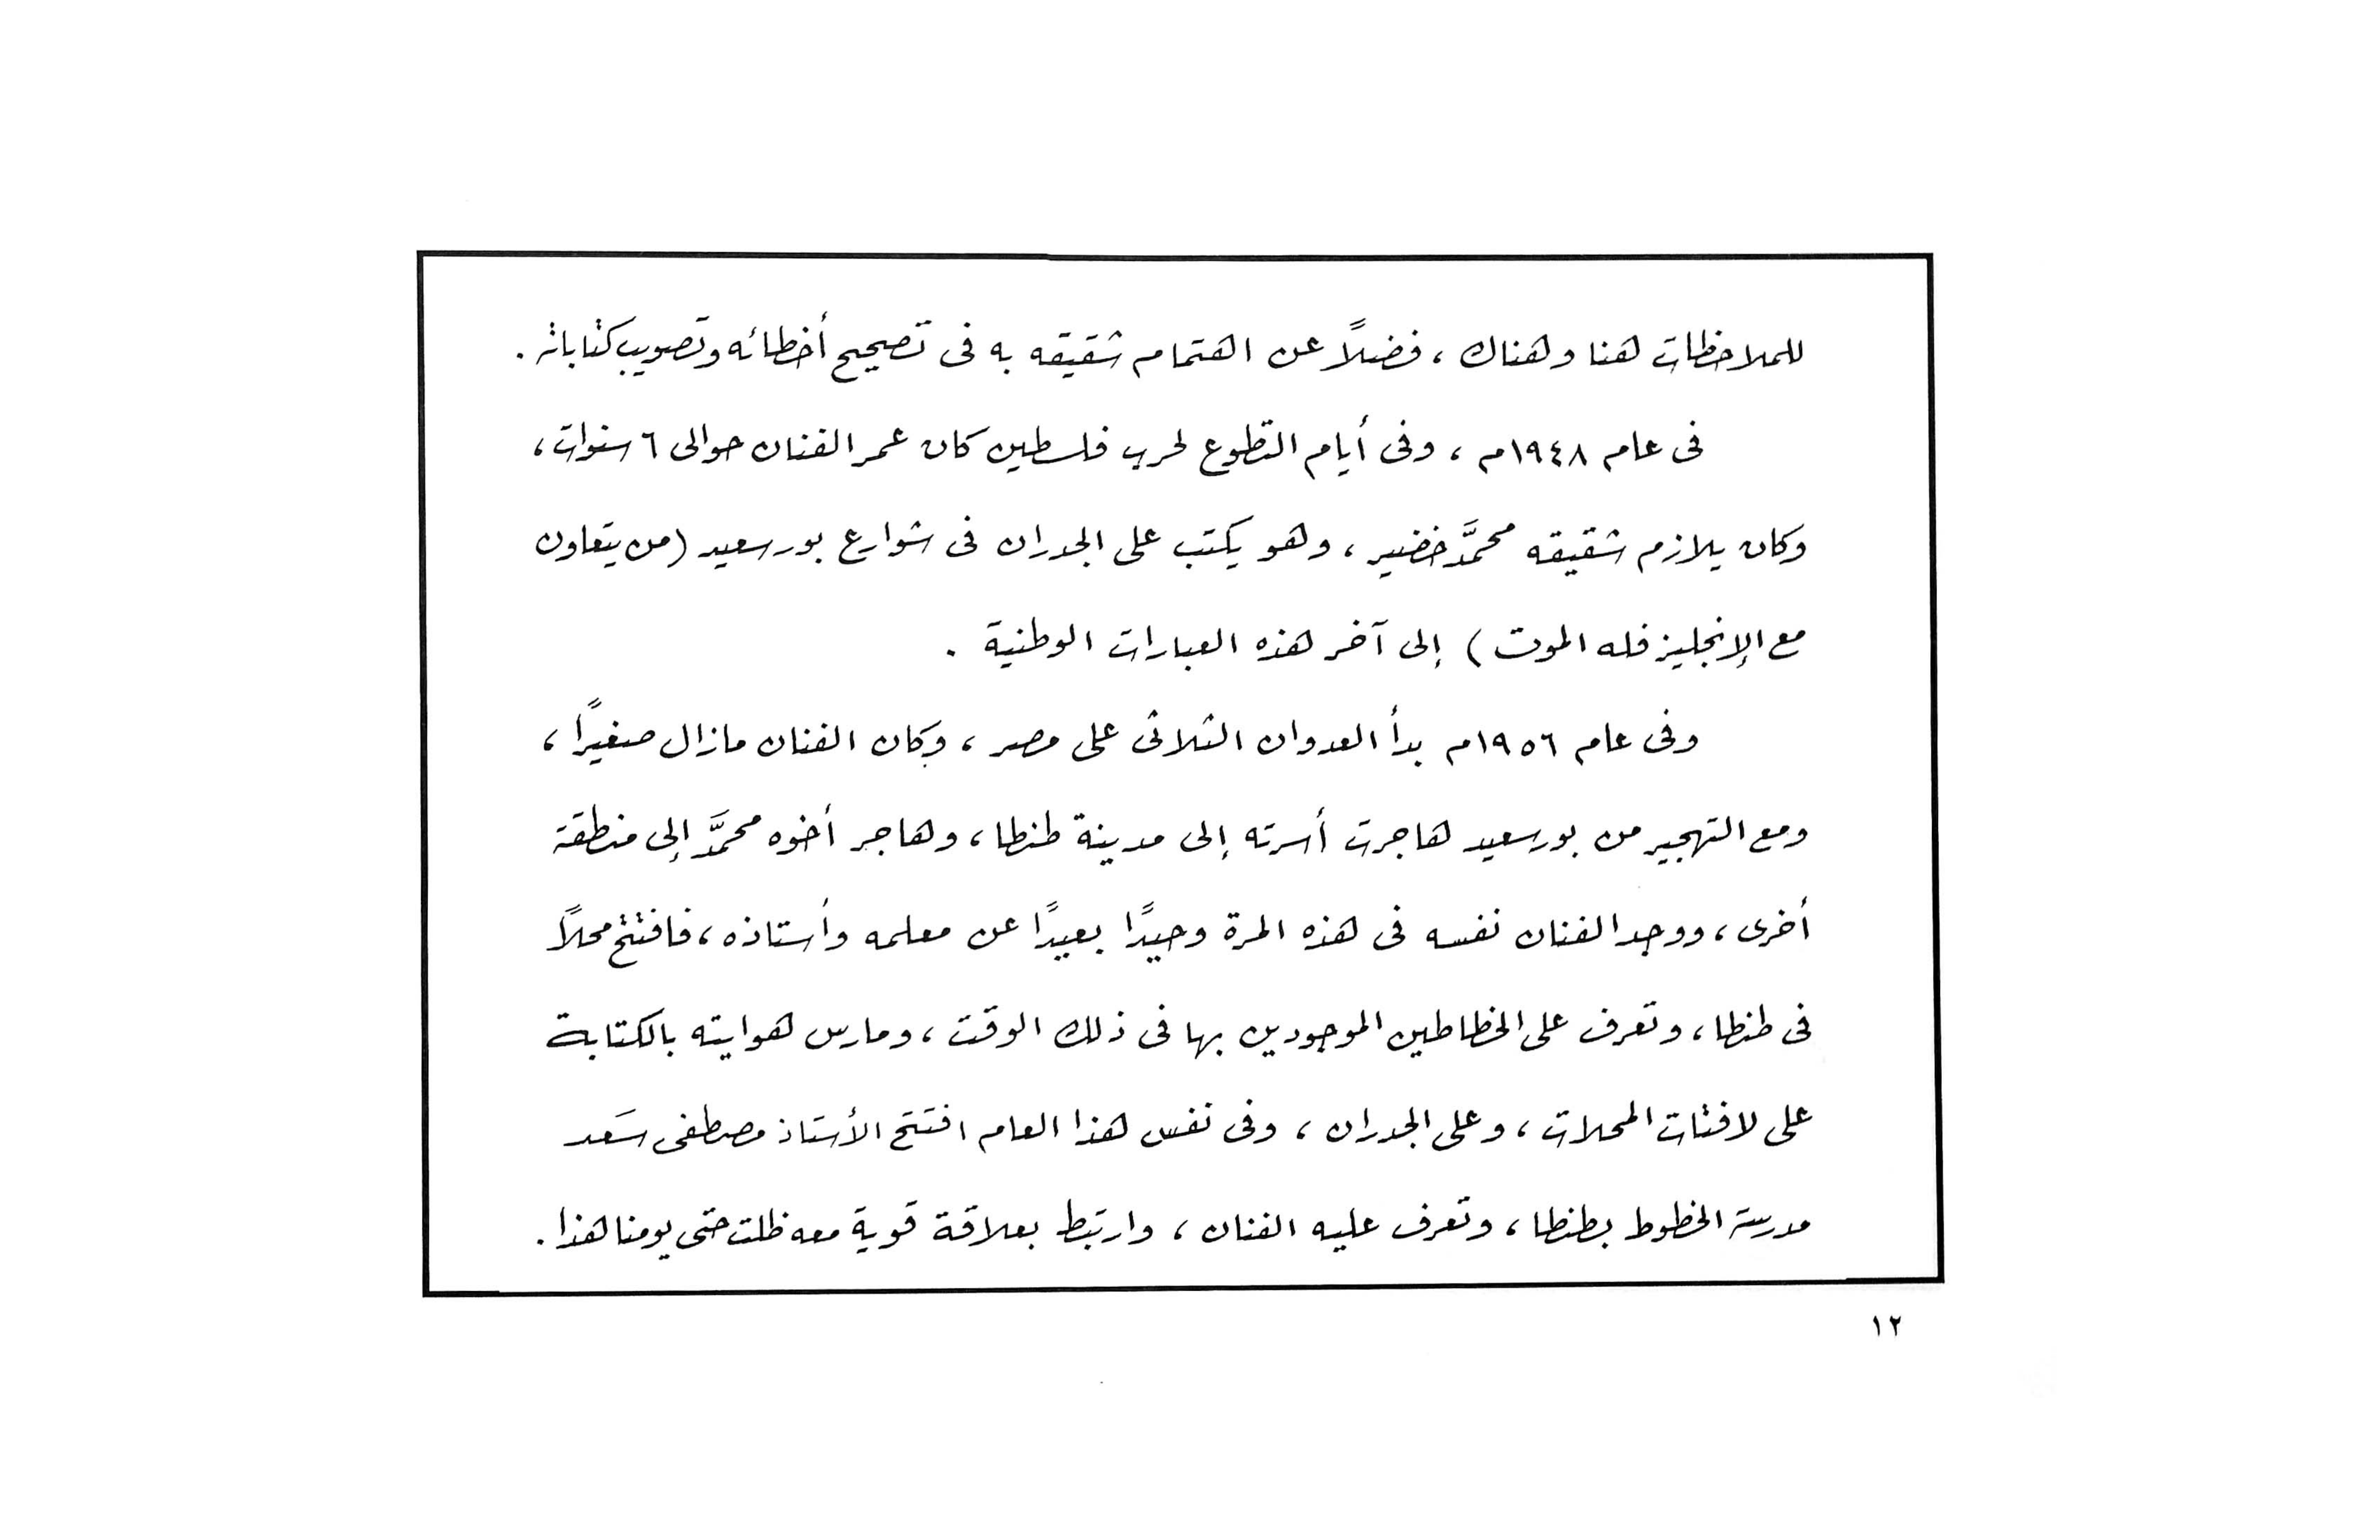 للملاحظات هنا وهناك ، فضلاً عن اهتمام شقيقه به فى تصحيح أخطائه وتصويب كتاباته .
فى عام ١٩٤٨م ، وفى أيام التطوع لحرب فلسطين كان عمر الفنان حوالى ٦ سنوات ،
وكان يلازم شقيقه محمَّد خضير ، وهو يكتب على الجدران فى شوارع بور سعيد (من يتعاون
مع الإنجليز فله الموت) إلى آخر هذه العبارات الوطنية .
وفى عام ١٩٥٦م بدأ العدوان الثلاثى على مصر ، وكان الفنان مازال صغيرًا ،
ومع التهجير من بور سعيد هاجرت أسرته إلى مدينة طنطا ، وهاجر أخوه محمَّد إلى منطقة
أخرى ، ووجد الفنان نفسه فى هذه المرة وحيدًا بعيدًا عن معلمه وأستاذه ، فافتتح محلاً
فى طنطا ، وتعرف على الخطاطين الموجودين بها فى ذلك الوقت ، ومارس هوايته بالكتابة
على لافتات المحلات ، وعلى الجدران ، وفى نفس هذا العام افتتح الأستاذ مصطفى سَعد
مدرسة الخطوط بطنطا ، وتعرف عليه الفنان ، وارتبط بعلاقة قوية معه ظلت حتى يومنا هذا .
١٢